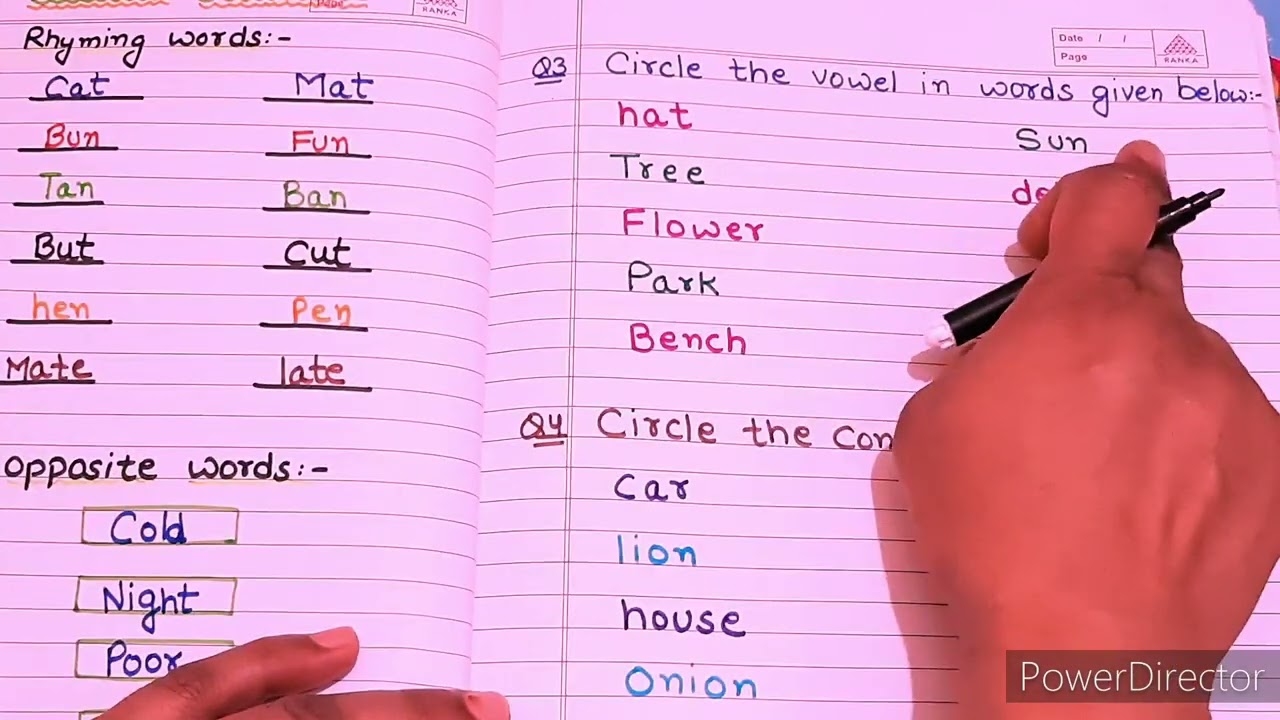 RANKA
Rhyming words:-
Cat Mat
Bun Fun
Tan Ban
But Cut
hen Pen
Mate late
opposite words:-
Cold
Night
Poor
Date / /
Page
RANKA
Q3 Circle the vowel in words given below:-
hat Sun
Tree
Flower
Park
Bench
Q4 Circle the
Car
lion
house
Onion
PowerDirector